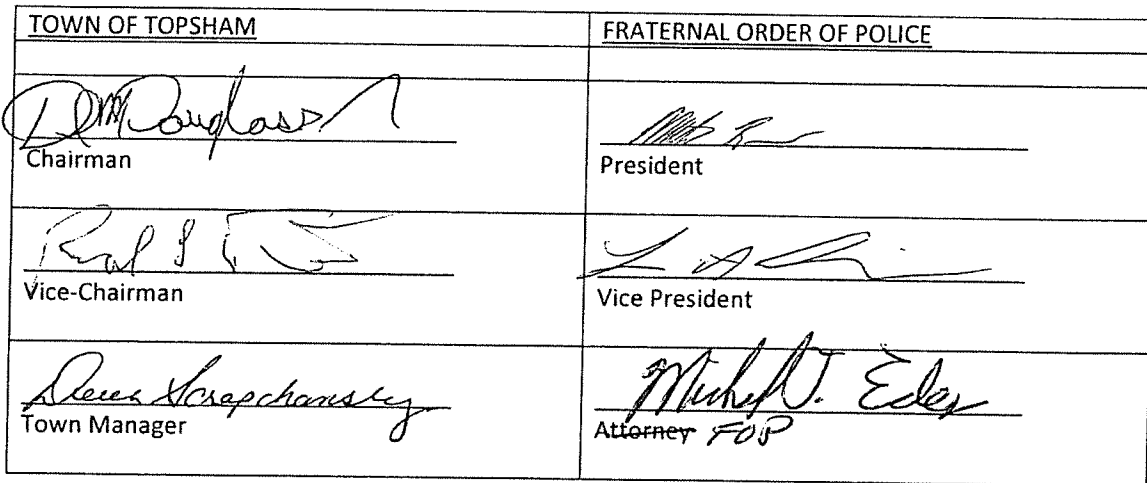 TOWN OF TOPSHAM
FRATERNAL ORDER OF POLICE
Douglass
Chairman
President
Vice-Chairman
Vice President
Scrapchansky
Town Manager
Michael J. Edes
Attorney FOP